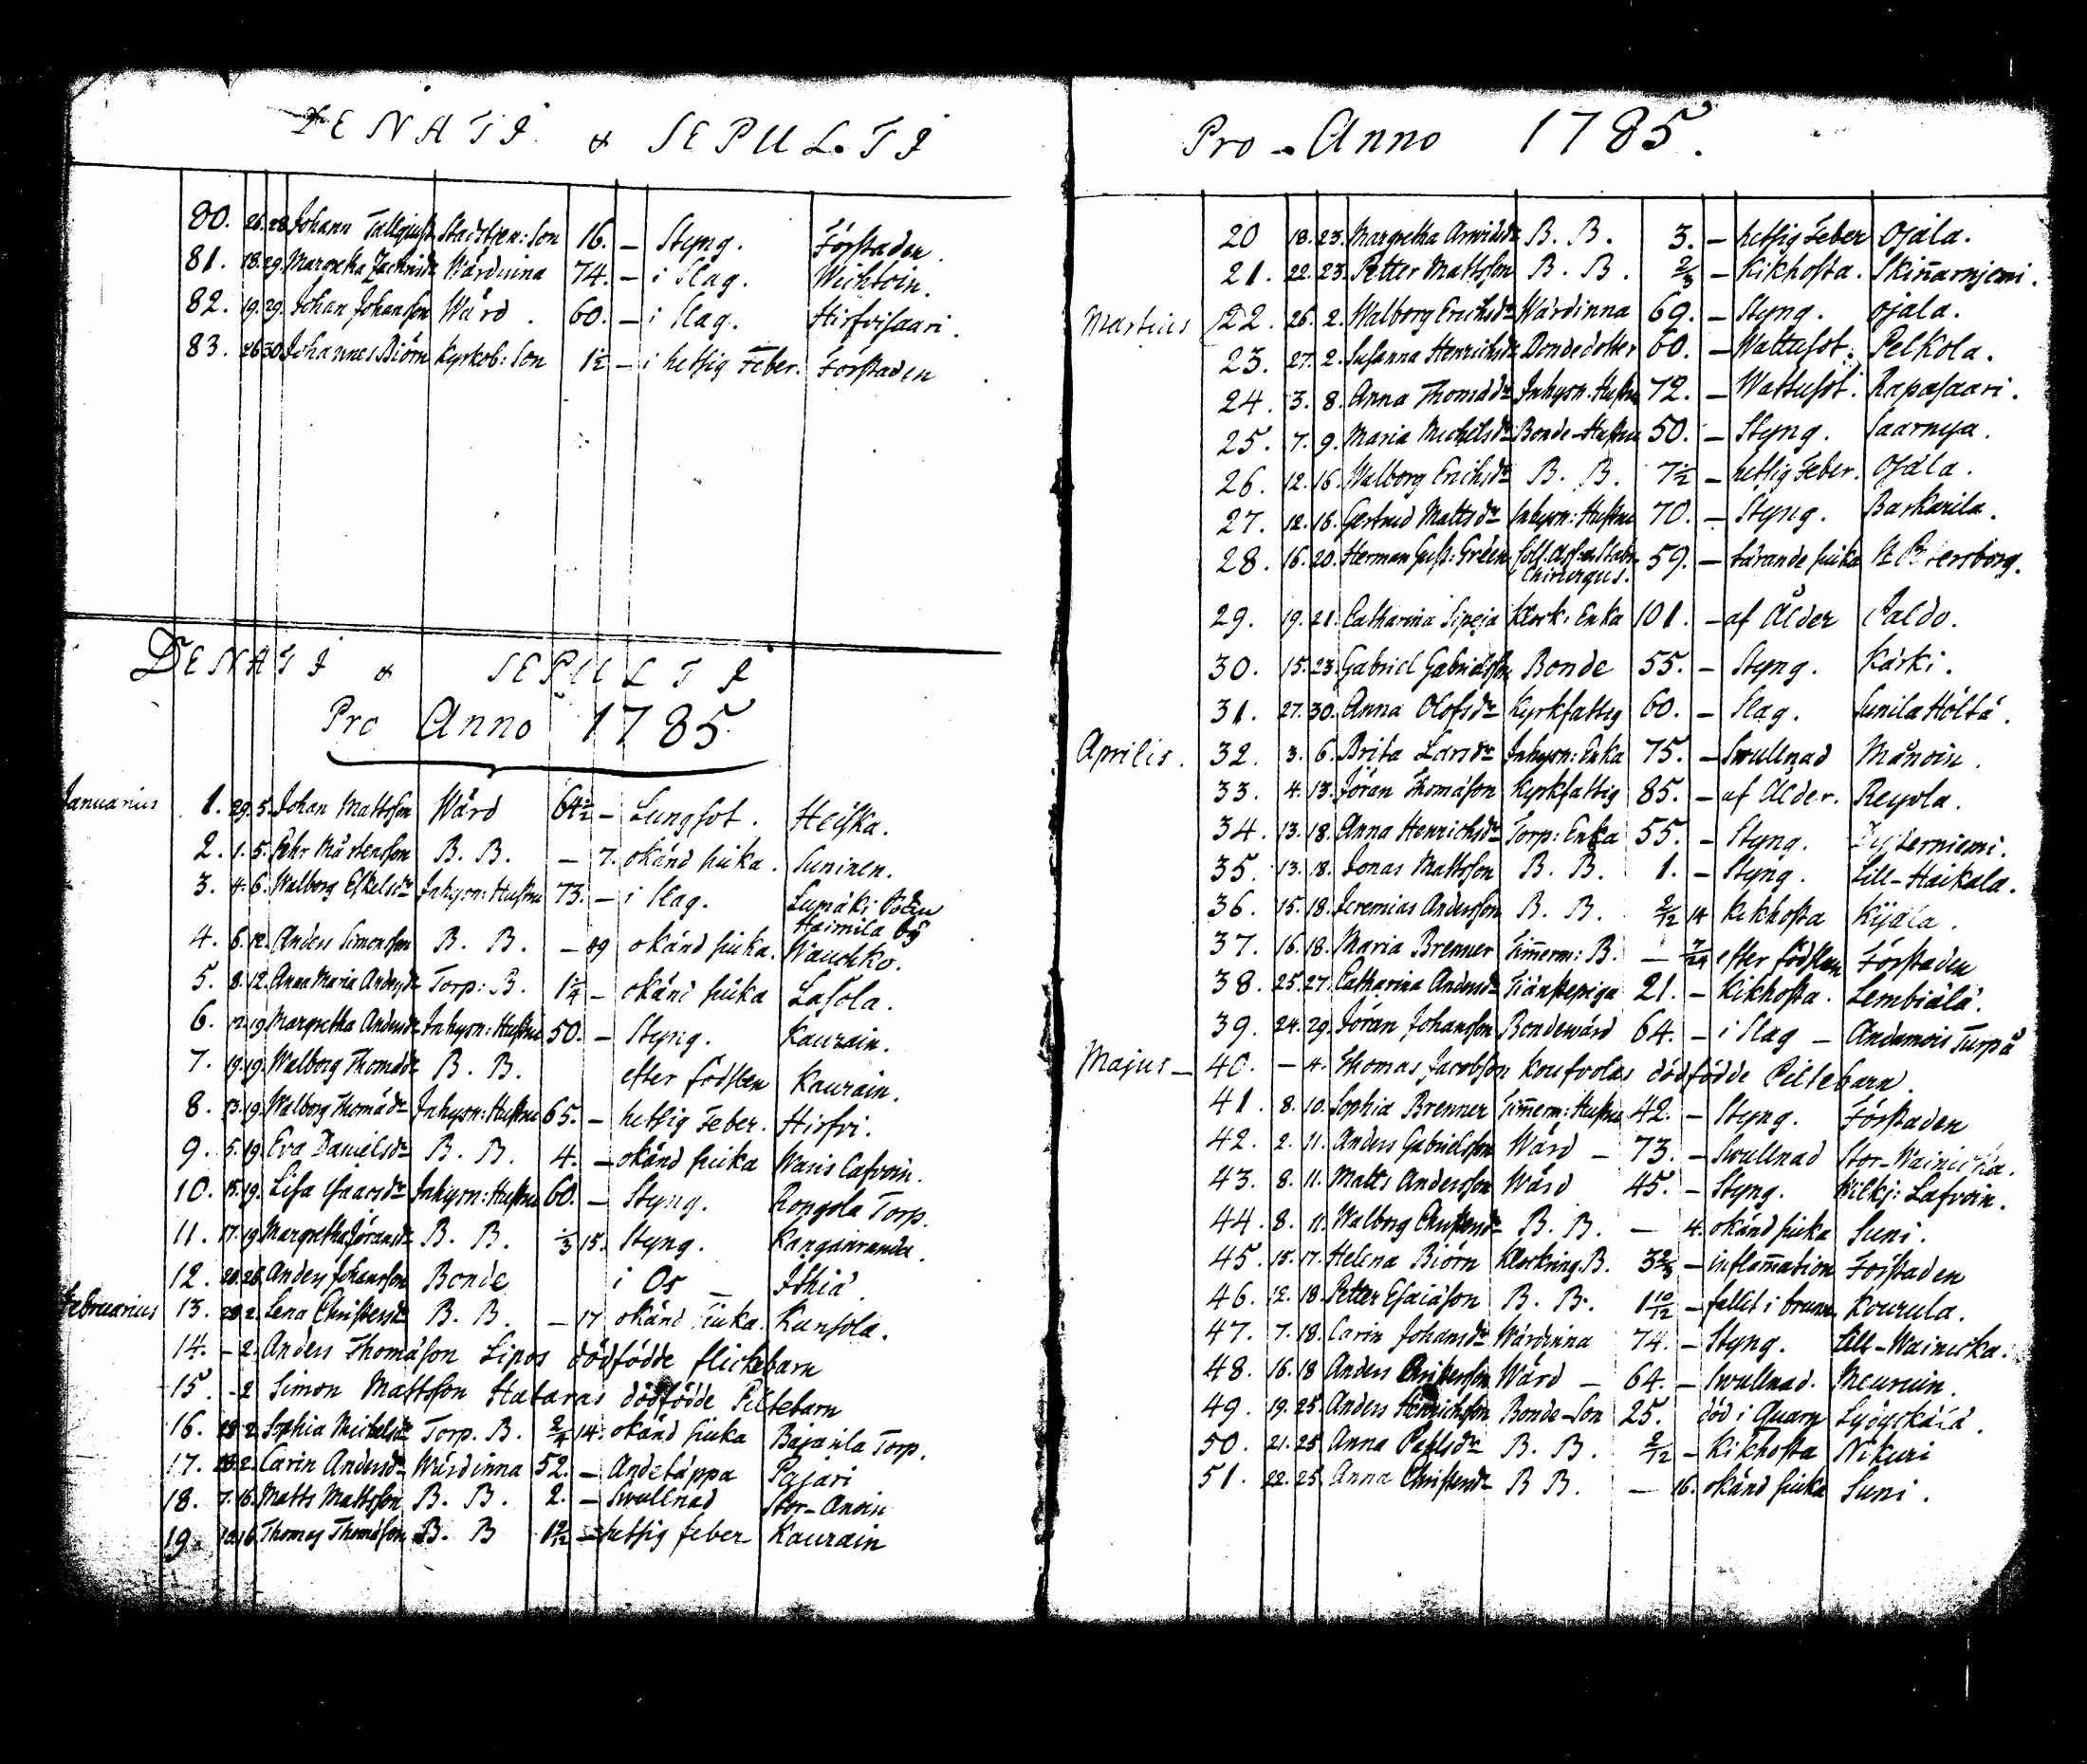 DENATI & SEPULTI
80. 26. 28. Johann Tallqvist Stadstjen: Son 16. – Styng. Förstaden.
81. 18. 29. Margretha Wärdinna 74. – i Slag. Wichtoin.
82. 19. 29. Johan Johansson Wärd. 60. – i Slag. Hirfvisaari.
83. 26 30 Johannes Biörn Kyrkob: Son 1½ – i hetsig Feber. Förstaden
DENATI & SEPULTI
Pro Anno 1785
Januarius 1. 29. 5. Johan Mattsson Wärd 64½ – Lungsot. Heiska.
2. 1. 5. Pehr Mårtensson B. B. – 7. okänd siuka. Suninen.
3. 4. 6. Walborg Eskelsdr Inhysn: Hustru 73. – i Slag. Lumäki
Haimila by
4. 6. 12. Anders Simonsson B. B. – 19 okänd siuka. Wauhko.
5. 8. 12. Anna Maria Andersdr Torp: B. 1¼ – okänd siuka Lasola.
6. 12. 19. Margretha Andersdr Inhysn: Hustru 50. – Styng. Kaurain.
7. 19. 19. Walborg Thomædr B. B. efter födslen Kaurain.
8. 13. 19. Walborg Thomædr Inhysn: Hustru 65. – hetsig Feber. Hirfvi.
9. 5. 19. Eva Danielsdr B. B. 4. – okänd siuka Waris Lafvoin.
10. 15. 19. Lisa Isaacsdr Inhysn: Hustru 60. – Styng. Rongola Torp.
11. 17. 19. Margretha Jöransdr B. B. ⅓ 15. Styng. Kangasranda.
12. 20. 26. Anders Johansson Bonde i Os – Ithiä.
Februarius 13. 29 2. Lena Christersdr B. B. – 17 okänd siuka. Kunsola.
14. – 2. Anders Thomæson Lipos dödfödde flickebarn
15. – 2 Simon Mattsson Hataras dödfödde Piltebarn
16. 28 2. Sophia Michelsdr Torp. B. 2/4 14. okänd siuka Bajarila Torp.
17. 28. 2. Carin Andersdr Wärdinna 52. – Andetäppa Pajari
18. 7. 16. Matts Mattsson B. B. 2. – Swullnad Stor-Anoin
19. 10. 16. Thomas Thomæson B. B – hetsig feber Kaurain
Pro – Anno 1785.
20 18. 23. Margretha Arwidsdr B. B. 3. – hetsig Feber Ojala.
21. 22. 23. Petter Mattsson B. B. ⅔ – Kikhosta. Skinnarnjemi.
Martius 22. 26. 2. Walborg Erichsdr Wärdinna 69. – Styng. Ojala.
23. 27. 2. Susanna Henrichsdr Bondedotter 60. – Wattusot. Pelkola.
24. 3. 8. Anna Thomædr Inhysn: Hustru 72. – Wattusot. Rapasaari.
25. 7. 9. Maria Michelsdr Bonde-Hustru 50. – Styng. Saarnya.
26. 12. 16. Walborg Erichsdr B. B. 7½ – hetsig Feber. Ojala.
27. 12. 16. Gertrud Mattsdr Inhysn: Hustru 70. – Styng. Barkarila.
28. 16. 20. Herman Gust: Gréen Coll. Ass. Stabs
Chirurgus. 59. – tärande siuka St Petersborg.
29. 19. 21. Catharina Sipoja Klock: Enka 101. – af Ålder Paldo.
30. 15. 23. Gabriel Gabrielsson Bonde 55. – Styng. Kärki.
31. 27. 30. Anna Olofsdr Kyrkfattig 60. – Slag. Sunila Höltä.
Aprilis. 32. 3. 6. Brita Larsdr Inhysn: Enka 75. – Swullnad Månoin.
33. 4. 13. Jöran Thomæson Kyrkfattig 85. – af Ålder. Reyola.
34. 13. 18. Anna Henrichsdr Torp: Enka 55. – Styng.
35. 13. 18. Jonas Mattsson B. B. 1. – Styng. Lill-Haikala.
36. 15. 18. Jeremias Andersson B. B. 2/12 14 Kikhosta Kijala.
37. 16. 18. Maria Brenner Timmerm: B. – 7/24 efter födslen Förstaden
38. 25. 27. Catharina Andersdr Tiänstepiga 21. – Kikhosta. Lembiälä.
39. 24. 29. Jöran Johansson Bondewärd 64. – i Slag – Andamois Turpå
Majus – 40. – 4. Thomas Jacobsson Koufvolas dödfödde Piltebarn.
41. 8. 10. Sophia Brenner Timmerm: Hustru 42. – Styng. Förstaden
42. 2. 11. Anders Gabrielsson Wärd – 73. – Swullnad Stor-Wainicka.
43. 8. 11. Matts Andersson Wärd 45. – Styng. Wilkj: Lafvoin.
44. 8. 11. Walborg Christersdr B. B. – 4. okänd siuka Suni.
45. 15. 17. Helena Biörn Klockring. B. 3⅔ – inflammation Förstaden
46. 12. 18. Petter Esaiæson B. B. 1 10/12 – fallit i brunn Kourula.
47. 7. 18. Carin Johansdr Wärdinna 74. – Styng. Lill-Wainicka.
48. 16. 18 Anders Christersson Wärd – 64. – Swullnad. Meuruin.
49. 19. 25. Anders Henrichsson Bonde-Son 25. död i Quarn
50. 21. 25 Anna Påhlsdr B. B. 2/12 – Kikhosta Nikuri
51. 22. 25. Anna Christersdr B B. – 16. okänd siuka Suni.